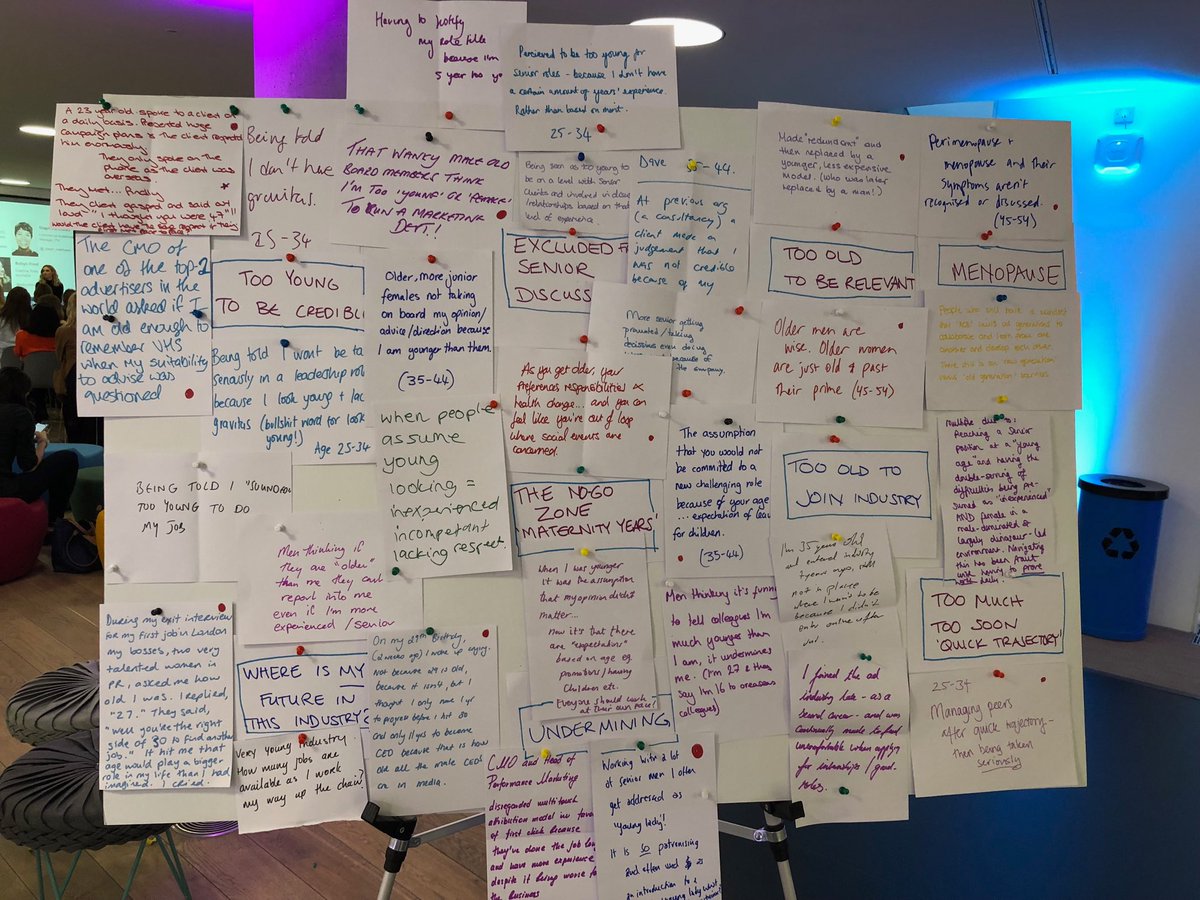 Having to justify
my role title
because I'm
5 year too yo
Percieved to be too young for
senior roles - because I don't have
a certain amount of years' experience.
Rather than based on merit.
25-34
A 23 year old spoke to a client on
a daily basis. Presented huge
campaign plans & the client regarded
him enormously
They only spoke on the
phone as the client was
overseas.
They met... finally
They client gasped and said out
loud "I thought you were 47"!!
Would the client have the same respect if they
Being told
I don't have
gravitas.
25-34
THAT WANKY MALE OLD
BOARD MEMBERS THINK
I'M TOO 'YOUNG' OR 'FEMALE'
TO RUN A MARKETING
DEPT!
Being seen as too young to
be on a level with senior
clients and involved in close
relationships based on that
level of experience
Dave 35-44.
At previous org
(a consultancy) a
client made a
judgement that I
was not credible
because of my
Made "redundant" and
then replaced by a
younger, less expensive
model. (Who was later
replaced by a man!)
Perimenopause +
menopause and their
symptoms aren't
recognised or discussed.
(45-54)
The CMO of
one of the top 2
advertisers in the
world asked if I
am old enough to
remember VHS
when my suitability
to advise was
questioned
TOO YOUNG
TO BE CREDIBL
Older, more junior
females not taking
on board my opinion/
advice/direction because
I am younger than them.
(35-44)
EXCLUDED F
SENIOR
DISCUSS
TOO OLD
TO BE RELEVANT
MENOPAUSE
More senior getting
promoted/taking
decisions even doing
because of
the company.
Older men are
wise. Older women
are just old & past
their prime (45-54)
People who still have a mindset
Being told I won't be ta
seriously in a leadership rol
because I look young + lac
gravitas (bullshit word for look
young!)
Age 25-34
As you get older, your
preferences responsibilities &
health change... and you can
feel like you're out of loop
where social events are
concerned.
when people
assume
young
looking =
inexperienced
incompetant
lacking respect.
The assumption
that you would not
be committed to a
new challenging role
because of your age
... expectation of leav
for children.
(35-44)
TOO OLD TO
JOIN INDUSTRY
Multiple
Reaching a Senior
position at a "young
age" and having the
double-sting of
difficulties being pre-
sumed as "inexperienced"
AND female in a
male-dominated &
largely dinosaur-led
environment. Navigating
this has been
having to prove
BEING TOLD I "SOUNDED
TOO YOUNG TO DO
MY JOB
THE NO-GO
ZONE
'MATERNITY YEARS'
Men thinking if
they are "older"
than me they can't
report into me
even if I'm more
experienced/senior
When I was younger
it was the assumption
that my opinion didn't
matter...
Now it's that there
are "expectations"
based on age eg.
promotions/having
children etc.
Everyone should work
at their own pace!
I'm 35 years old
and entered industry
7 years ago, still
not in a place
where I want to be
because I didn't
enter online after
uni.
TOO MUCH
TOO SOON
'QUICK TRAJECTORY'
During my exit interview
for my first job in London
my bosses, two very
talented women in
PR, asked me how
old I was. I replied,
"27." They said,
"well you're the right
side of 30 to find another
job." It hit me that
age would play a bigger
role in my life than I had
imagined. I cried.
Men thinking it's funny
to tell colleagues I'm
much younger than
I am, it undermines
me. (I'm 27 & they
say I'm 16 to overseas
colleagues)
On my 29th Birthday,
(2 weeks ago) I woke up crying.
Not because it is old,
because it isn't, but I
thought I only have 1 yr
to progress before I hit 30
and only 11 yrs to become
CEO because that is how
old all the male CEOs
are in media.
WHERE IS MY
FUTURE IN
THIS INDUSTRY
I joined the ad
industry late - as a
second career - and was
continually made to feel
uncomfortable when applying
for internships / grad.
roles.
25-34
Managing peers
after quick trajectory -
then being taken
seriously
UNDERMINING
Very young industry.
How many jobs are
available as I work
my way up the chain?
CMO and Head of
Performance Marketing
disregarded multitouch
attribution model in favou
of first click because
they've done the job long
and have more experience
despite it being worse fo
the business
Working with a lot
of senior men I often
get addressed as
'young lady'!
It is so patronising
and often used as
an introduction to a